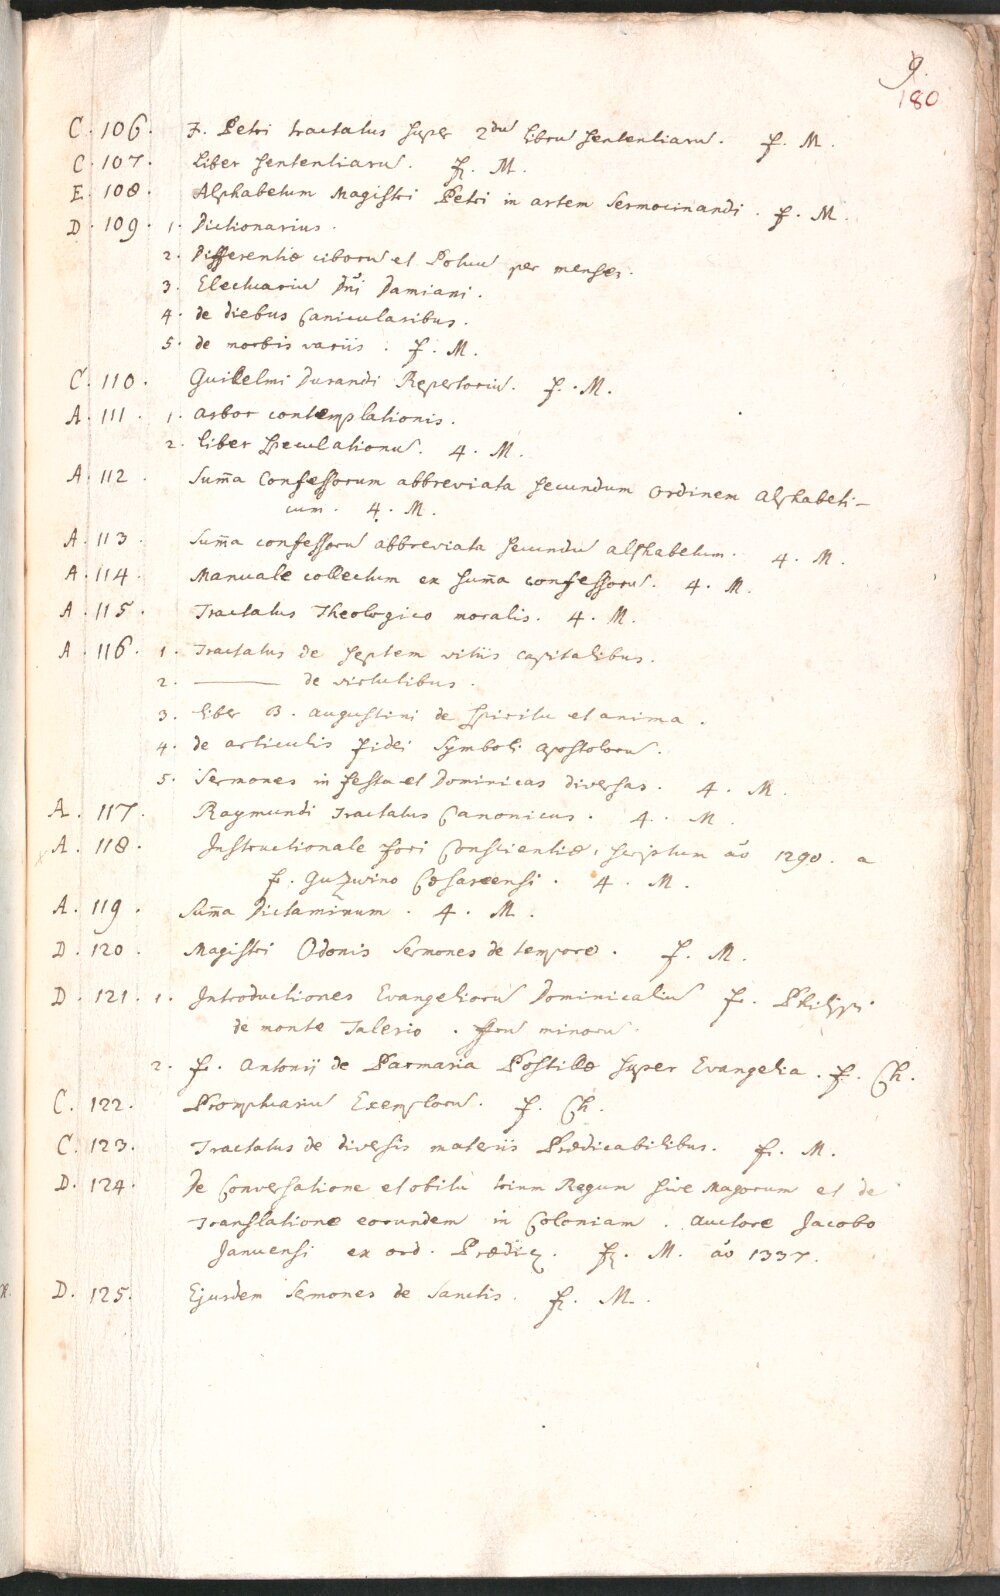 9.
180
C. 106. F. Petri tractatus super 2dū librū sententiarū. f. M.
C. 107. Liber sententiarū. f. M.
E. 108. Alphabetum Magistri Petri in artem sermocinandi. f. M.
D. 109. 1. Dictionarius.
2. Differentiæ ciborū et Potuū per menses.
3. Electuariū Dn̄i Damiani.
4. de diebus Canicularibus.
5. de morbis variis. f. M.
C. 110. Guilelmi Durandi Repertoriū. f. M.
A. 111. 1. arbor contemplationis.
2. liber speculationū. 4. M.
A. 112. Sum̄a Confessorum abbreviata secundum ordinem alphabeti-
cum. 4. M.
A. 113. Sum̄a confessorū abbreviata secundū alphabetum. 4. M.
A. 114. Manuale collectum ex sum̄a confessorū. 4. M.
A. 115. Tractatus Theologico moralis. 4. M.
A. 116. 1. Tractatus de septem vitiis capitalibus.
2. ——— de virtutibus.
3. liber B. Augustini de spiritu et anima.
4. de articulis fidei Symboli apostolorū.
5. Sermones in festa et Dominicas diversas. 4. M.
A. 117. Raymundi Tractatus Canonicus. 4. M.
A. 118. Instructionale fori Conscientiæ, scriptum aō 1290. a
f. Guzwino Cæsareensi. 4. M.
A. 119. Sum̄a Dictaminum. 4. M.
D. 120. Magistri Odonis Sermones de tempore. f. M.
D. 121. 1. Introductiones Evangeliorū Dominicaliū f. Philippi
de monte Calerio. minorū.
2. f. Antonij de Parmaria Postillæ super Evangelia. f. Ch.
C. 122. Promptuariū Exemplorū. f. Ch.
C. 123. Tractatus de diversis materiis Prædicabilibus. f. M.
D. 124. De Conversatione et obitu trium Regum sive Magorum et de
Translatione eorundem in Coloniam. auctore Jacobo
Januensi ex ord. Prædic. f. M. aō 1337.
D. 125. Ejusdem Sermones de Sanctis. f. M.